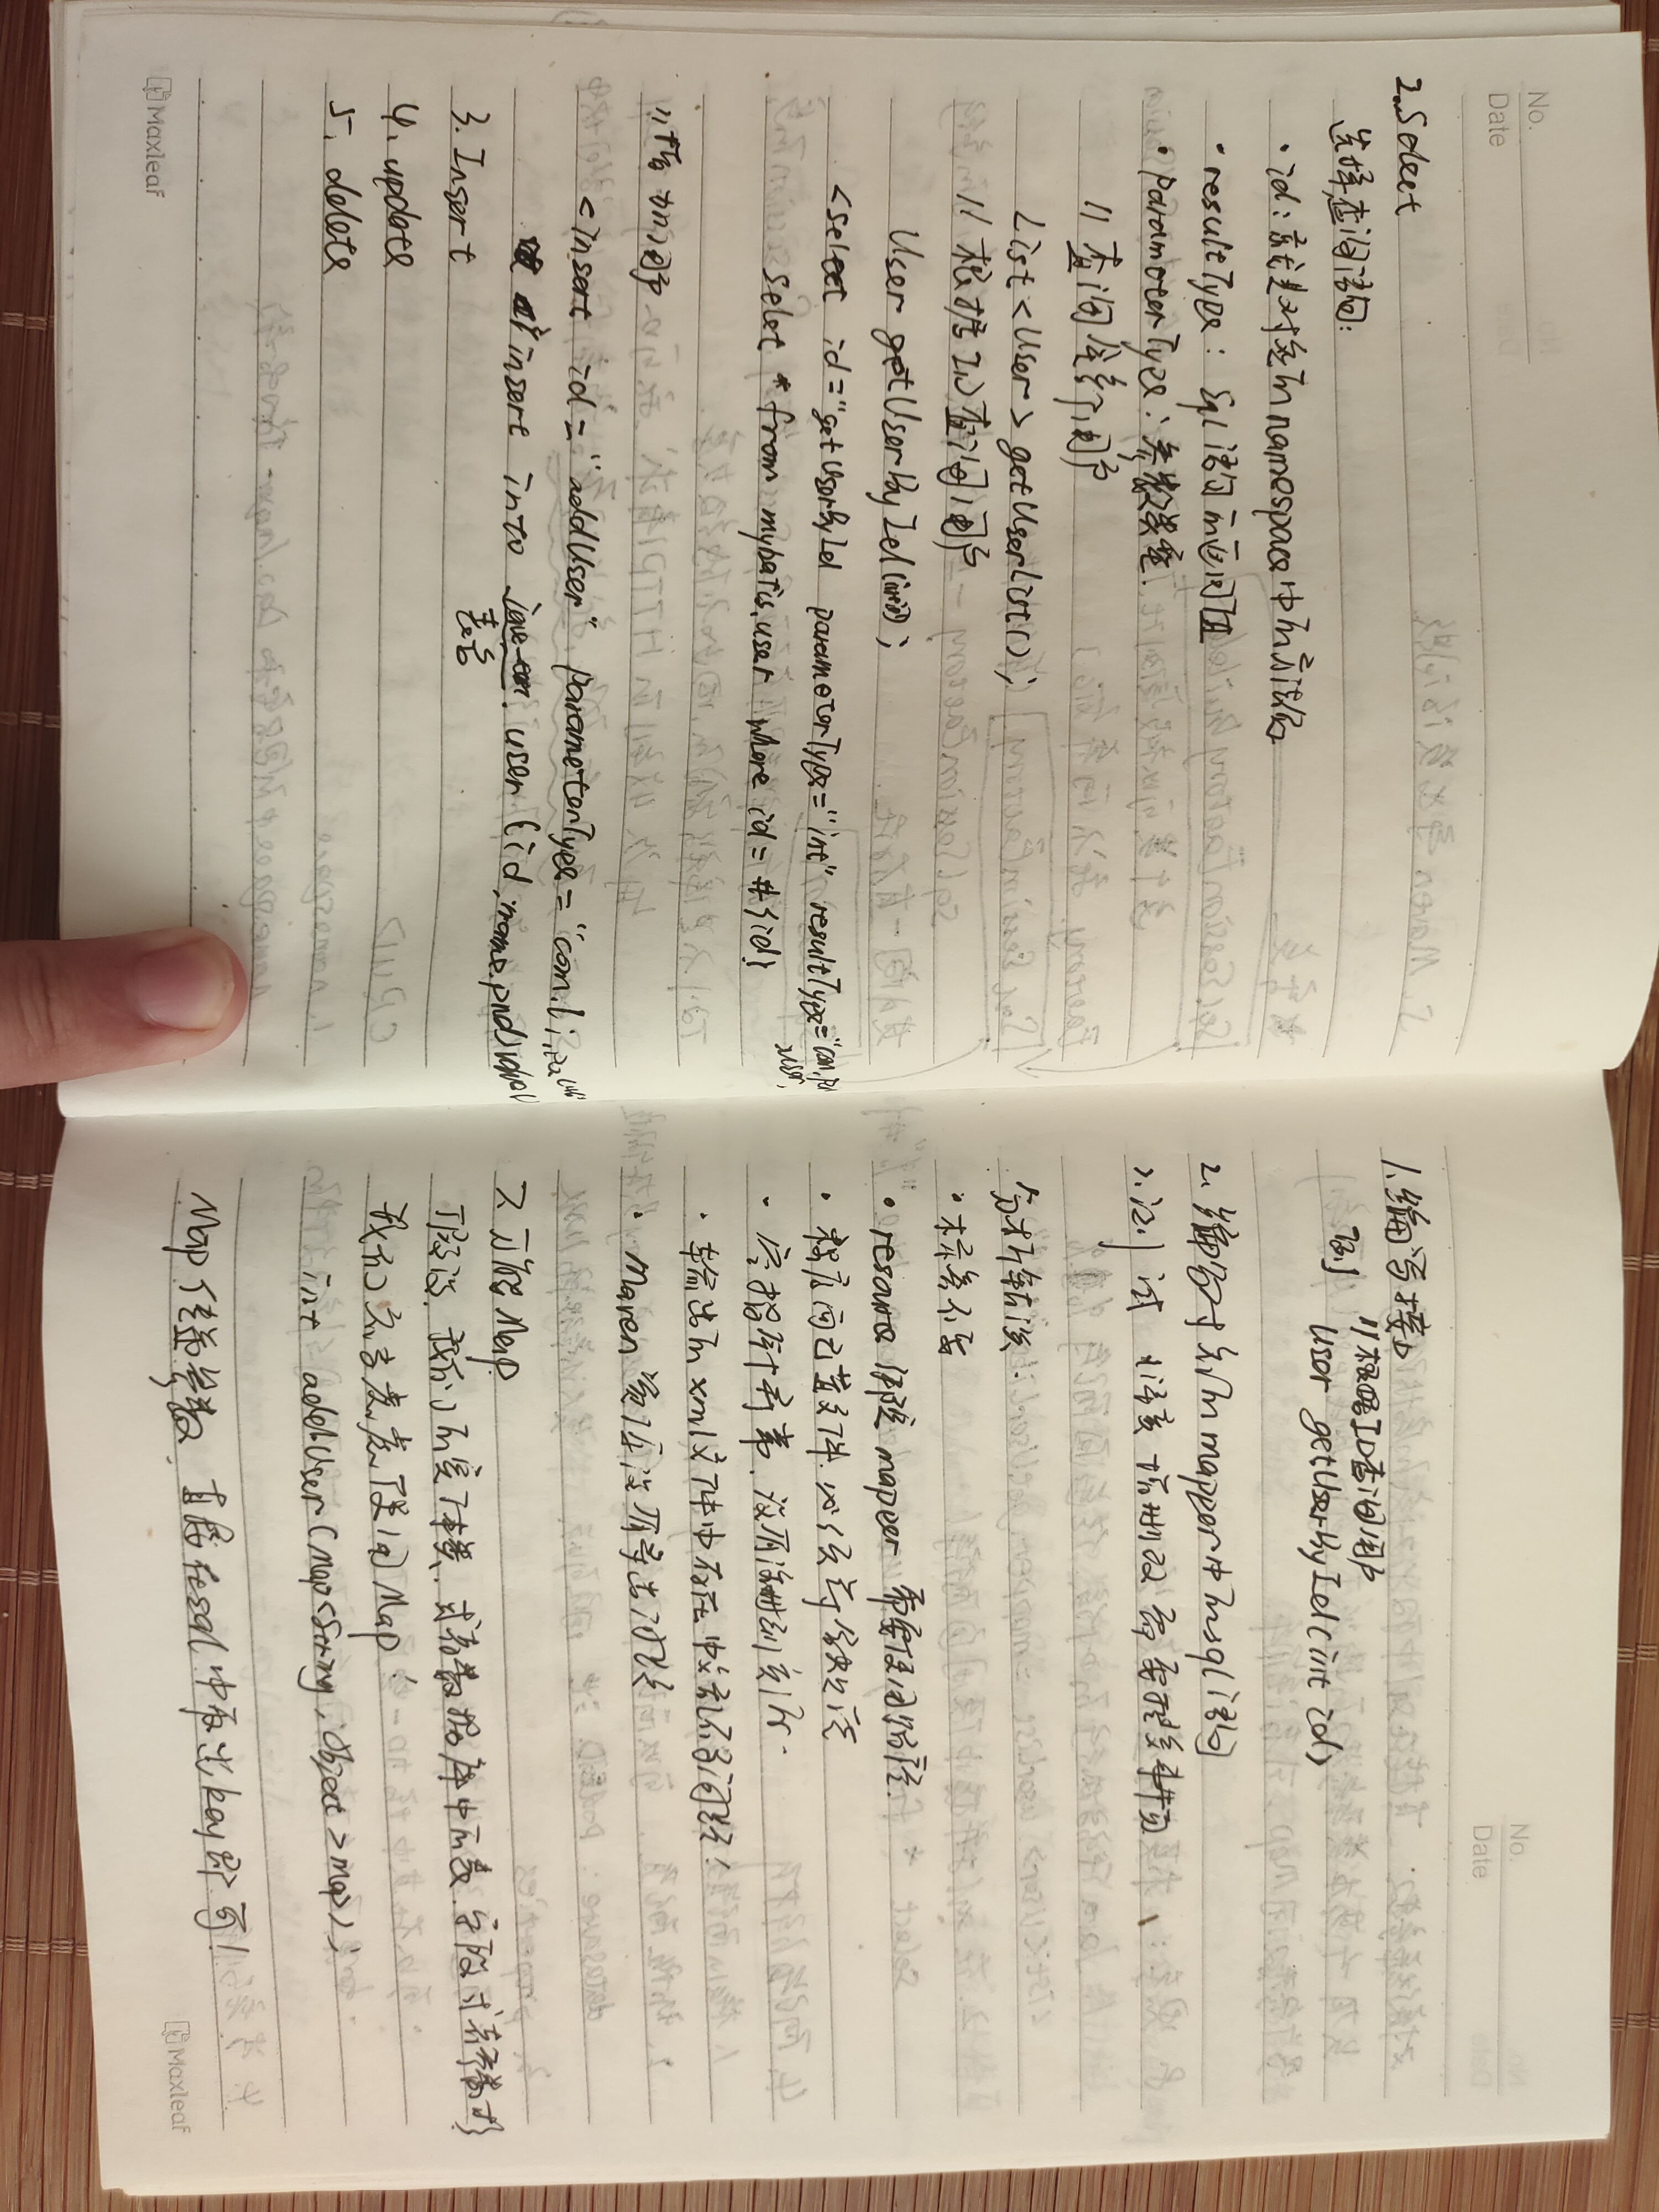 No.
Date
2. Select
选择,查询语句:
·id:就是对应的namespace中的方法名
·resultType:Sql语句的返回值
·parameterType:参数类型.
// 查询全部用户
List<User> getUserList();
// 根据ID查询用户
User getUserById(int id);
<select id="getUserById parameterType="int" resultType="com.
select * from mybatis.user where id=#{id}
<insert id="addUser" parameterType="com.li.
insert into user(id,name,pwd)
表名
3. Insert
4. update
5. delete
Maxleaf
No.
Date
1.编写接口
例 //根据ID查询用户
User getUserById(int id)
2.编写对应的mapper中的sql语句
3.测试
分析错误.
·标签不
·resource 绑定mapper 需要 路径.
·程序
·空指针 没有注册到资源.
·输出的xml文件中存在中文乱码问题!
·Maven资源没有导出问题
7.万能Map
假设,我们的实体类,或者数据库中的表,字段或者参数
我们应当考虑使用Map!
int addUser(Map<String,Object> map);
Map传递参数,直接在sql中取出key即可!
Maxleaf